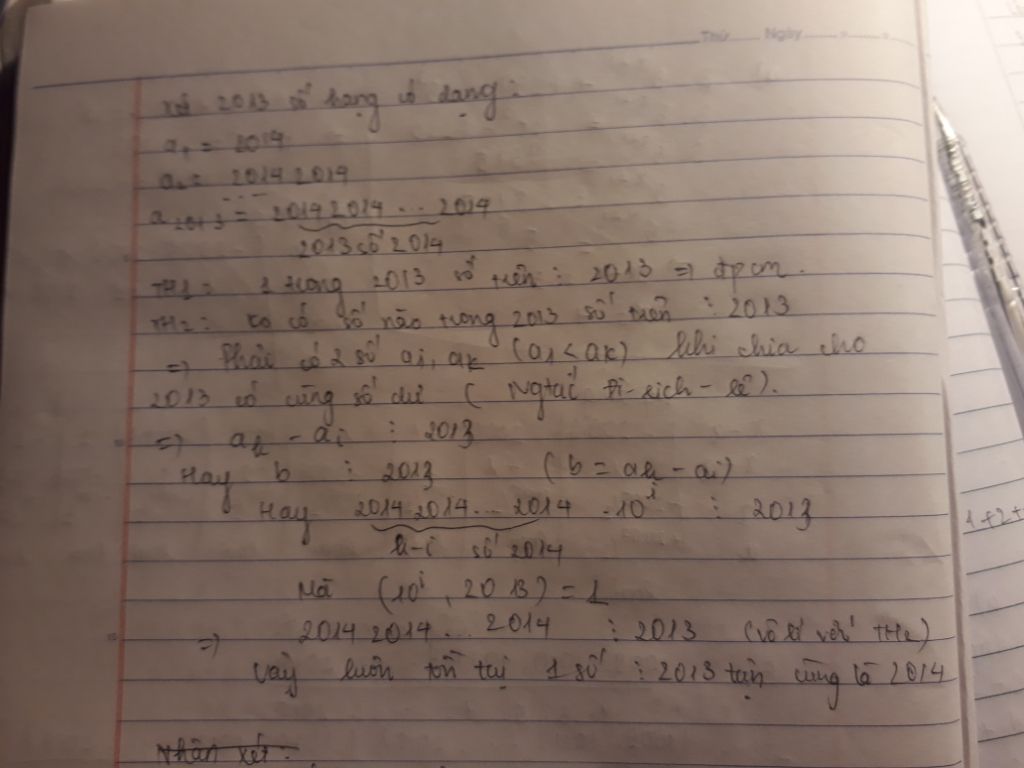 Thứ Ngày
Xét 2013 số hạng có dạng:
a₁ = 2014
a₂ = 20142014
- - - -
a₂₀₁₃ = 20142014...2014
2013 số 2014
TH1: 1 trong 2013 số trên ⋮ 2013 => đpcm.
TH2: Ko có số nào trong 2013 số trên ⋮ 2013
=> Phải có 2 số ai, ak (ai < ak) khi chia cho
2013 có cùng số dư ( Ngtắc Đi-rich-lê).
=> ak - ai ⋮ 2013
Hay b ⋮ 2013 (b = ak - ai)
Hay 20142014...2014 .10ⁱ ⋮ 2013
k-i số 2014
Mà (10ⁱ, 2013) = 1
=> 20142014...2014 ⋮ 2013 (vô lí với TH2)
Vậy luôn tồn tại 1 số ⋮ 2013 tận cùng là 2014
Nhận xét.
1+2+